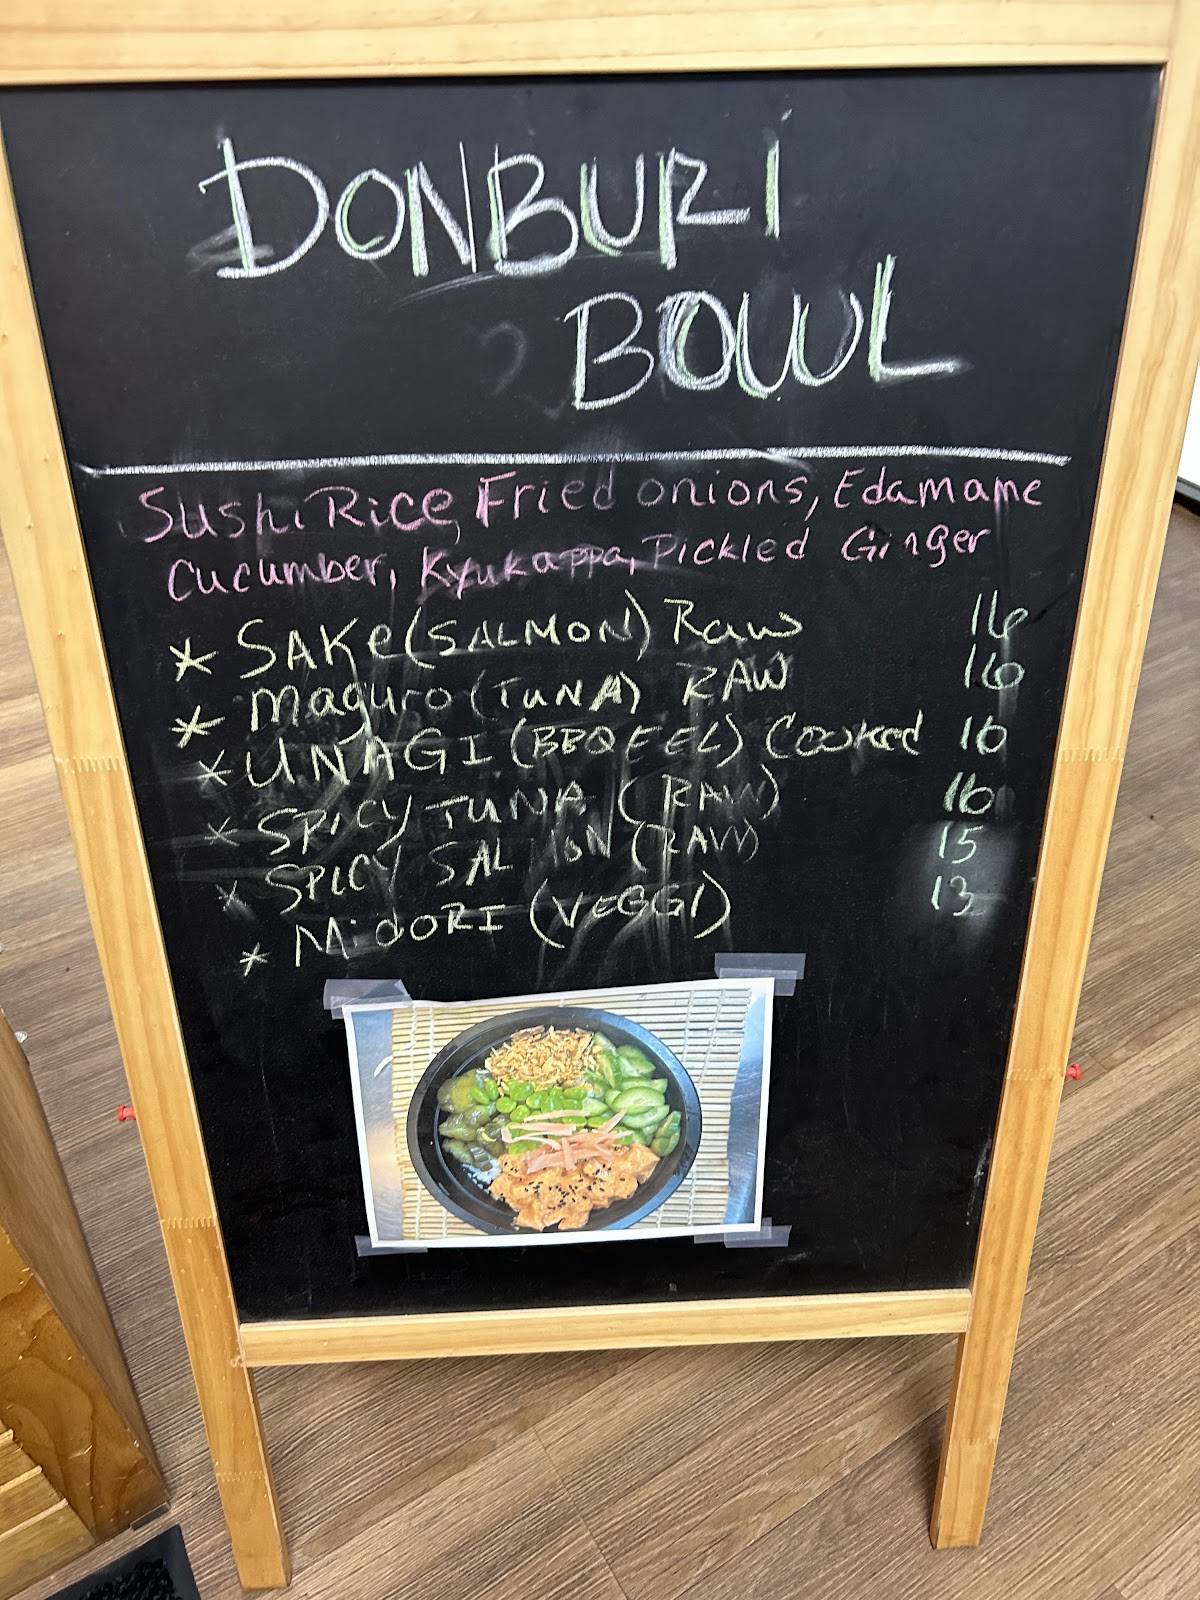 DONBURI
BOWL
Sushi Rice, Fried onions, Edamame
Cucumber, Kyukappa, Pickled Ginger
* SAKe (SALMON) Raw 16
* Maguro (TUNA) RAW 16
* UNAGI (BBQ EEL) Cooked 16
* SPICY TUNA (RAW) 16
* SPICY SAL ON (RAW) 15
* MidORI (VEGGI) 13